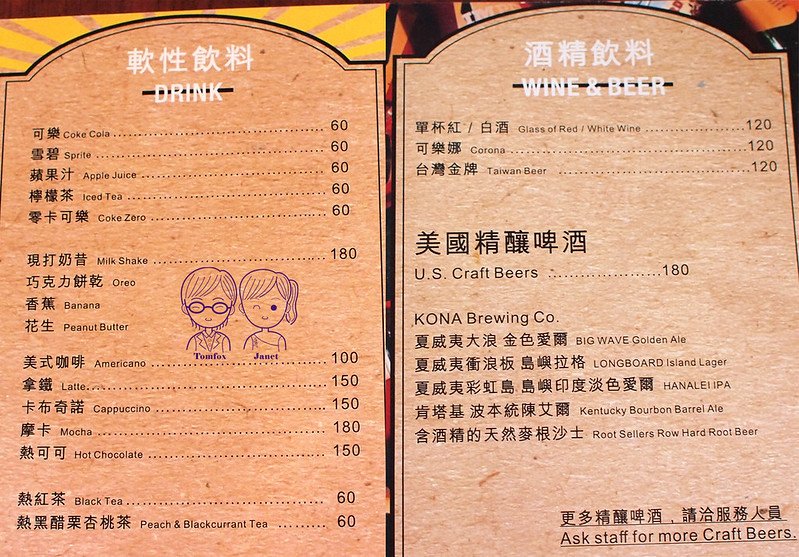 軟性飲料
DRINK
可樂 Coke Cola 60
雪碧 Sprite 60
蘋果汁 Apple Juice 60
檸檬茶 Iced Tea 60
零卡可樂 Coke Zero 60
現打奶昔 Milk Shake 180
巧克力餅乾 Oreo
香蕉 Banana
花生 Peanut Butter
Tomfox Janet
美式咖啡 Americano 100
拿鐵 Latte 150
卡布奇諾 Cappuccino 150
摩卡 Mocha 180
熱可可 Hot Chocolate 150
熱紅茶 Black Tea 60
熱黑醋栗杏桃茶 Peach & Blackcurrant Tea 60
酒精飲料
WINE & BEER
單杯紅 / 白酒 Glass of Red / White Wine 120
可樂娜 Corona 120
台灣金牌 Taiwan Beer 120
美國精釀啤酒
U.S. Craft Beers 180
KONA Brewing Co.
夏威夷大浪 金色愛爾 BIG WAVE Golden Ale
夏威夷衝浪板 島嶼拉格 LONGBOARD Island Lager
夏威夷彩虹島 島嶼印度淡色愛爾 HANALEI IPA
肯塔基 波本統陳艾爾 Kentucky Bourbon Barrel Ale
含酒精的天然麥根沙士 Root Sellers Row Hard Root Beer
更多精釀啤酒，請洽服務人員
Ask staff for more Craft Beers.